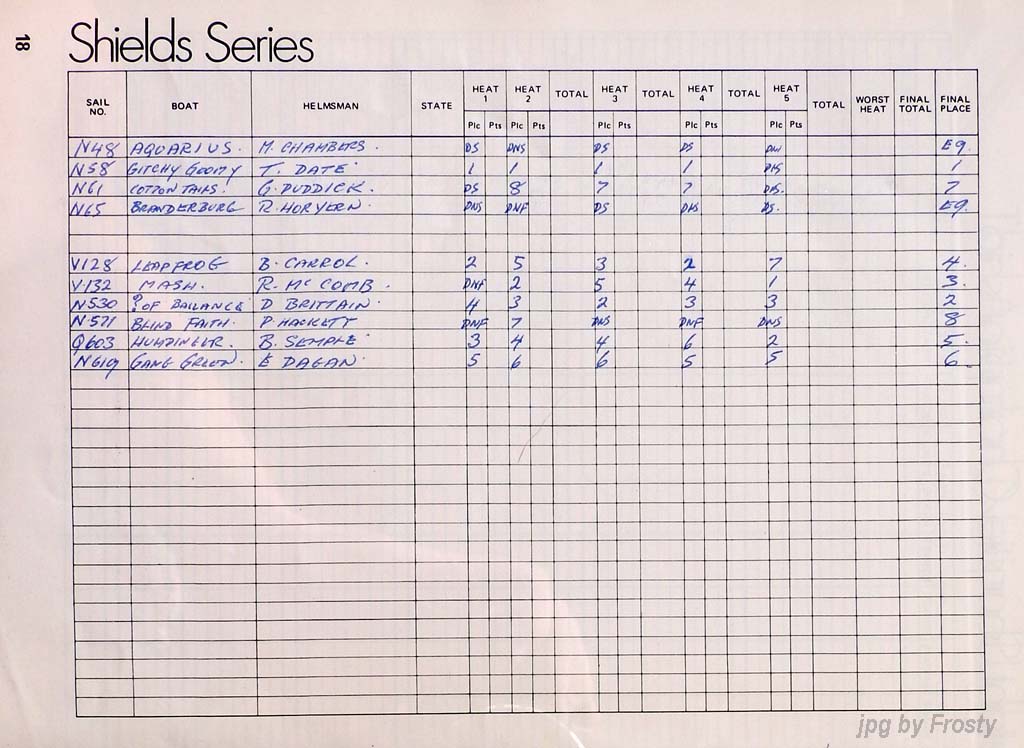 18
Shields Series
SAIL NO. BOAT HELMSMAN STATE HEAT 1 HEAT 2 TOTAL HEAT 3 TOTAL HEAT 4 TOTAL HEAT 5 TOTAL WORST HEAT FINAL TOTAL FINAL PLACE
Plc Pts Plc Pts Plc Pts Plc Pts Plc Pts
N48 AQUARIUS. M. CHAMBERS. DS DNS DS DS E9.
N58 GITCHY GOOMY T. DATE 1 1 1 1 1
N61 COTTON TAILS. G. PUDDICK. DS 8 7 7 7
N65 BRANDERBURG R. HORVERN. DNS DNF DS DS. E9.
V128 LEAPFROG B. CARROL. 2 5 3 2 7 4.
V132 MASH. R. MC COMB. DNF 2 5 4 1 3.
N530 ? OF BALLANCE D BRITTAIN. 4 3 2 3 3 2
N571 BLIND FAITH. P. HACKETT DNF 7 DNS DNF DNS 8
Q603 HUMDINGER. B. SEMPLE 3 4 4 6 2 5.
N619 GANG GREEN. E DAGAN. 5 6 6 5 5 6.
jpg by Frosty